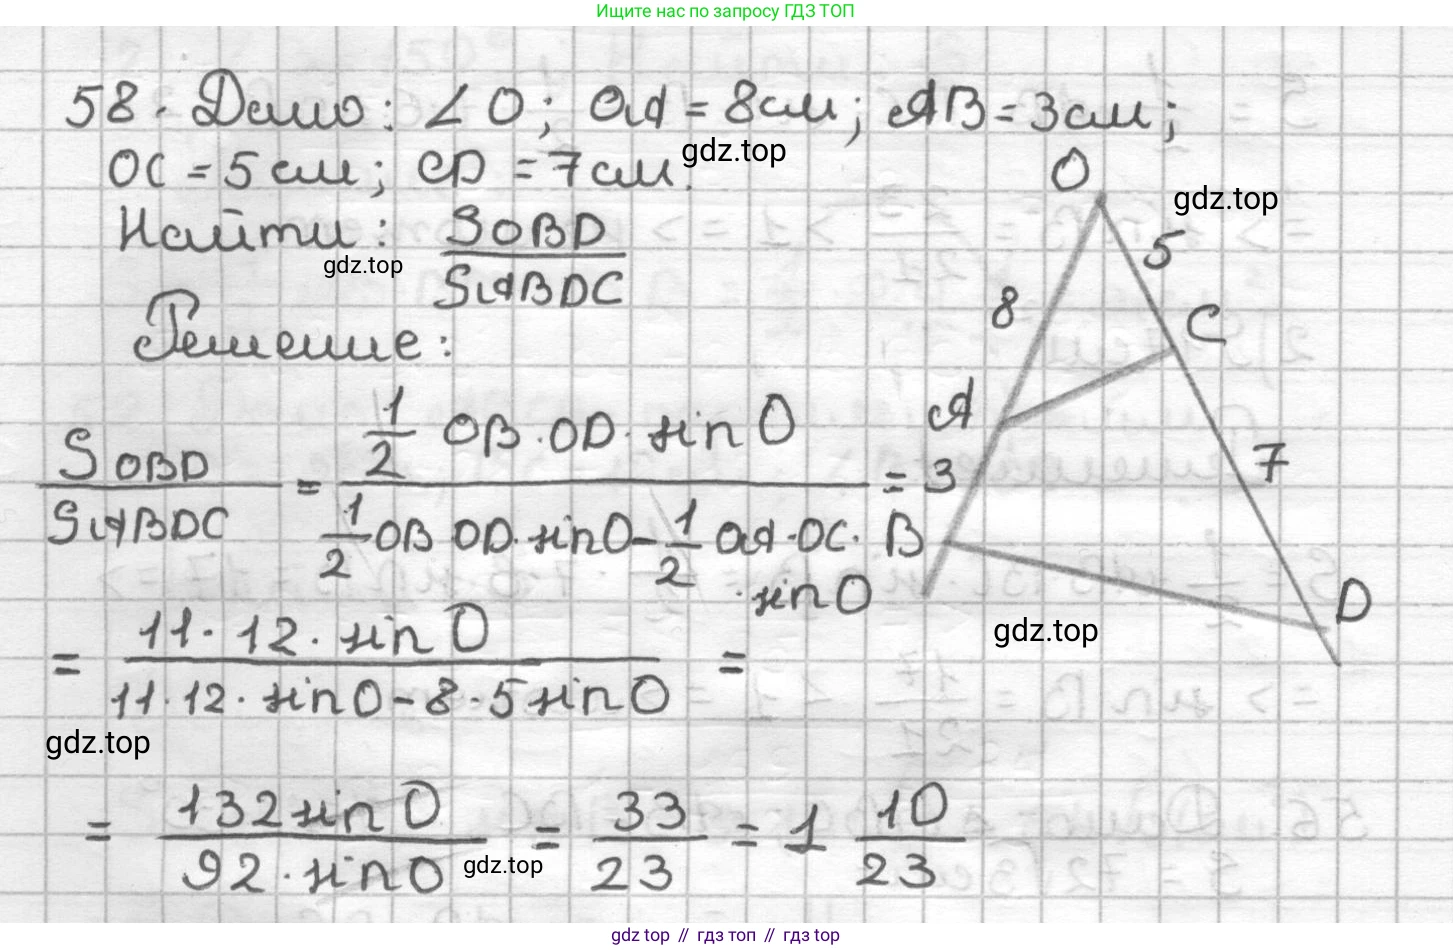 Ищите нас по запросу ГДЗ ТОП
58. Дано: ∠O; OA = 8см; AB = 3см;
OC = 5см; CD = 7см.
gdz.top
Найти: SOBD / SABDC
gdz.top
Решение:
SOBD / SABDC = 1/2 OB·OD·sin O / 1/2 OB OD·sin O - 1/2 OA·OC·sin O =
= 11·12·sin O / 11·12·sin O - 8·5 sin O =
gdz.top
= 132 sin O / 92·sin O = 33 / 23 = 1 10/23
gdz.top
O
gdz.top
5
8
C
A
3
7
B
D
gdz.top
gdz top // гдз топ // гдз top